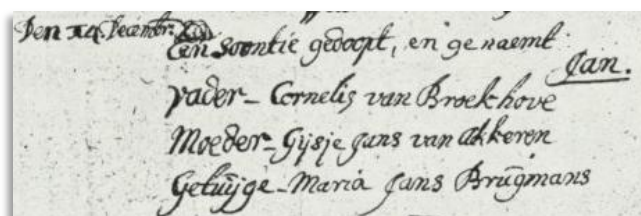 Den 14. Decembr.
Een soontie gedoopt, en genaemt
Jan.
Vader - Cornelis van Broekhove
Moeder - Gijsje Jans van Akkeren
Getuijge - Maria Jans Brugmans